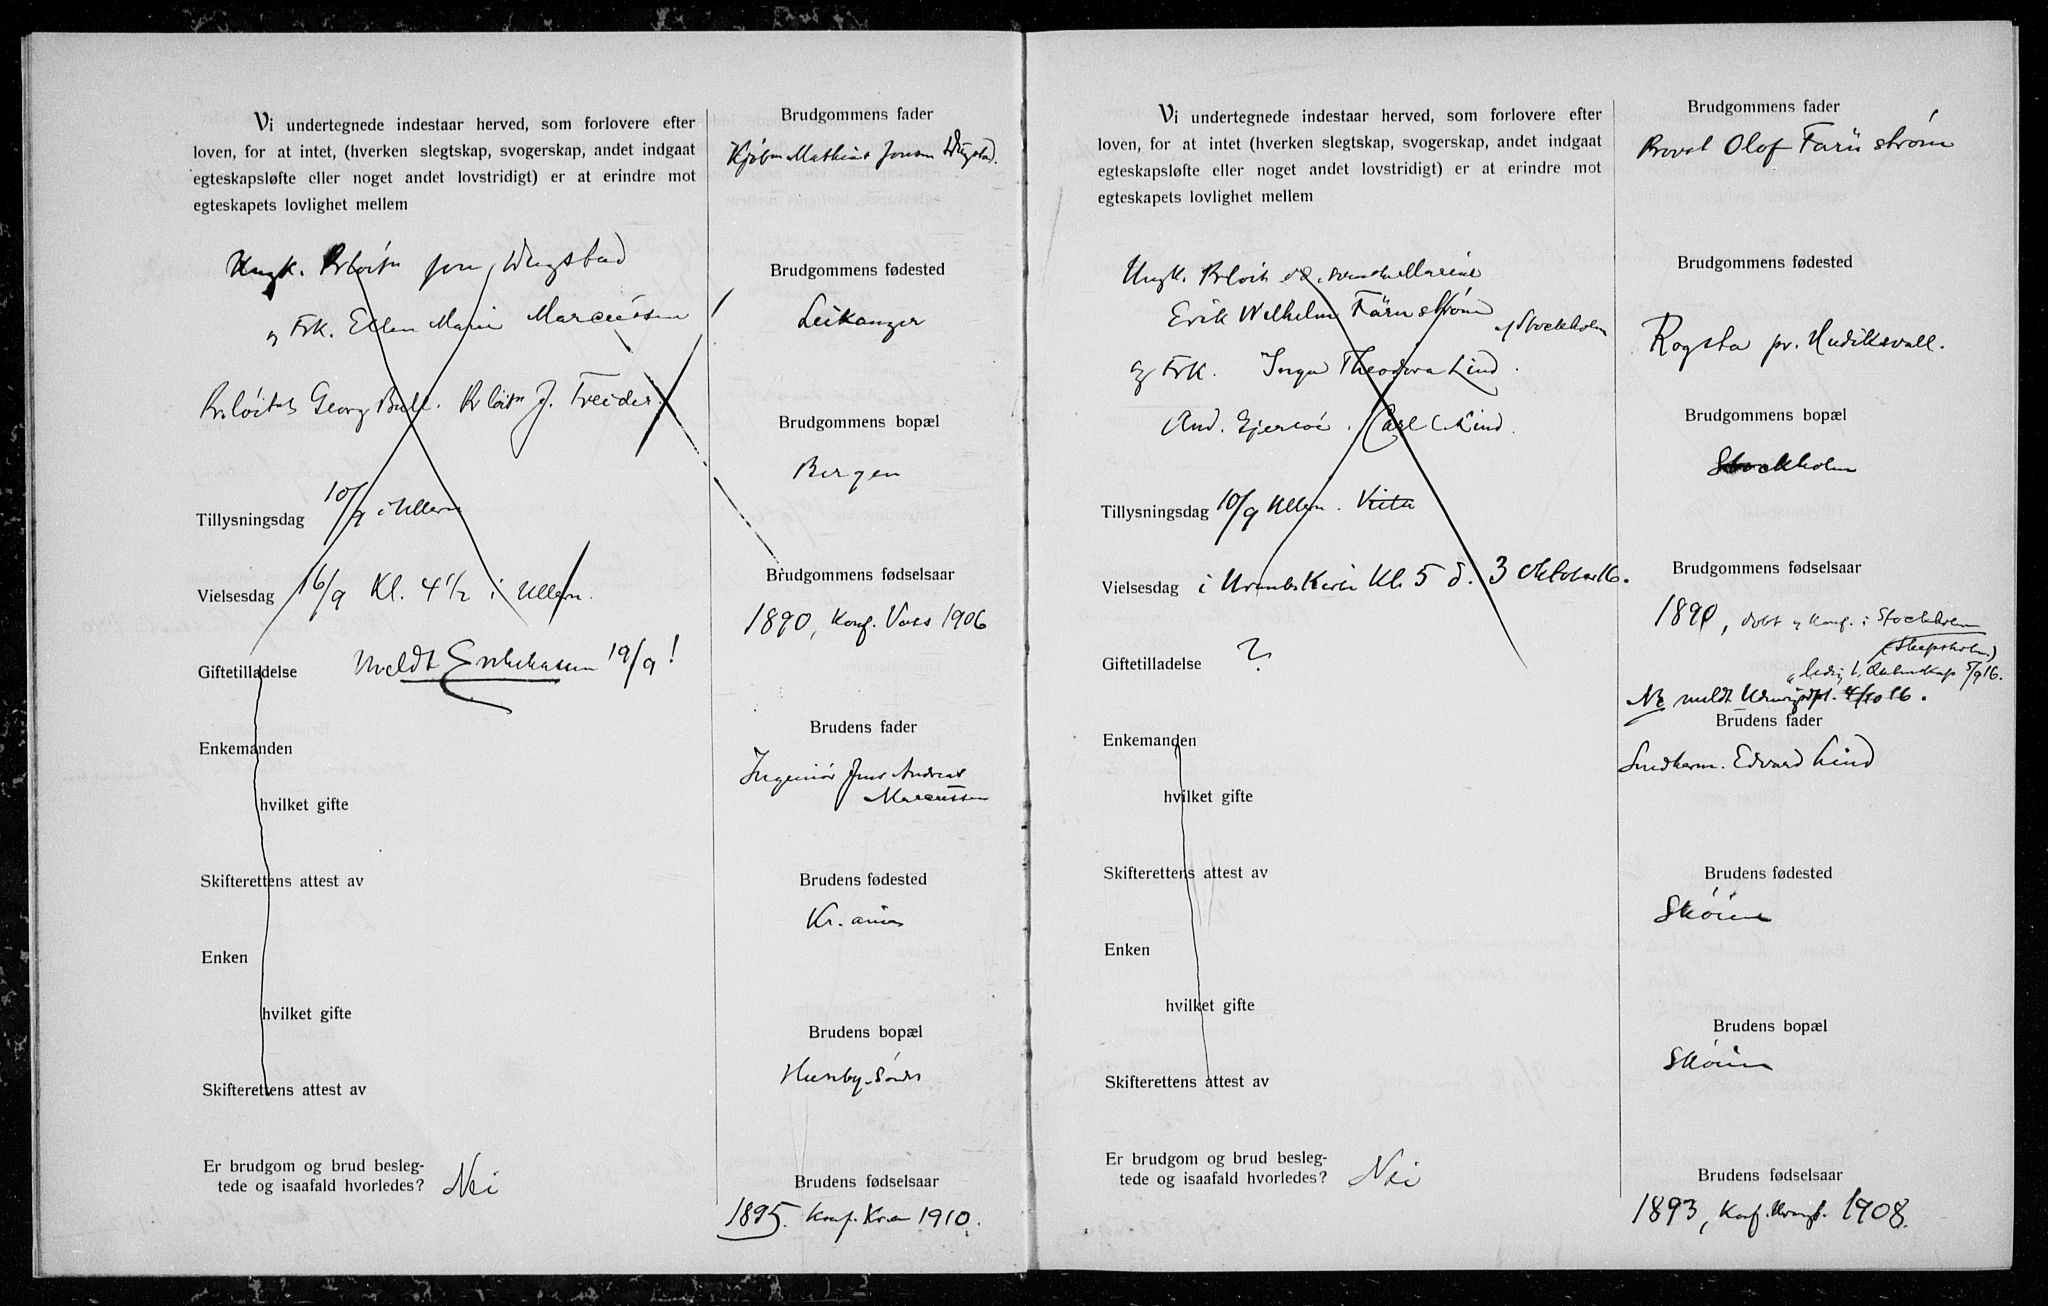 Vi undertegnede indestaar herved, som forlovere efter
loven, for at intet, (hverken slegtskap, svogerskap, andet indgaat
egteskapsløfte eller noget andet lovstridigt) er at erindre mot
egteskapets lovlighet mellem
Ungk. Prløitn Jon
og Frk. Ellen Marie Marcussen
Georg Bull. Prløitn J. Treider
Tillysningsdag 10/9 i Ullern
Vielsesdag 16/9 Kl. 4 1/2 i Ullern.
Giftetilladelse 19/9!
Enkemanden
hvilket gifte
Skifterettens attest av
Enken
hvilket gifte
Skifterettens attest av
Er brudgom og brud besleg-
tede og isaafald hvorledes? Nei
Brudgommens fader
Kjøbm Mathias Jonsen
Brudgommens fødested
Leikanger
Brudgommens bopæl
Bergen
Brudgommens fødselsaar
1890, Konf. Voss 1906
Brudens fader
Ingeniør Jens Andreas
Marcussen
Brudens fødested
Kr.ania
Brudens bopæl
Husby
Brudens fødselsaar
1895. Konf. Kr.a 1910.
Vi undertegnede indestaar herved, som forlovere efter
loven, for at intet (hverken slegtskap, svogerskap, andet indgaat
egteskapsløfte eller noget andet lovstridigt) er at erindre mot
egteskapets lovlighet mellem
Ungk. Prløit svenske Marine
Erik Wilhelm Färnstrøm
af Stockholm
og Frk. Inga Theodora Lind.
And. Gjersøe. Carl Lind.
Tillysningsdag 10/9 Ullern.
Vielsesdag i Kl. 5 d. 3 oktober 16.
Giftetilladelse ?
Enkemanden
hvilket gifte
Skifterettens attest av
Enken
hvilket gifte
Skifterettens attest av
Er brudgom og brud besleg-
tede og isaafald hvorledes? Nei
Brudgommens fader
Provst Olof Färnstrøm
Brudgommens fødested
Rogsta pr. Hudiksvall.
Brudgommens bopæl
Stockholm
Brudgommens fødselsaar
1890, døbt og konf. i Stockholm
(Skepsholm.)
5/9 16.
meldt 4/10 16.
Brudens fader
Edvard Lind
Brudens fødested
Skøien
Brudens bopæl
Skøien
Brudens fødselsaar
1893, Konf. 1908.